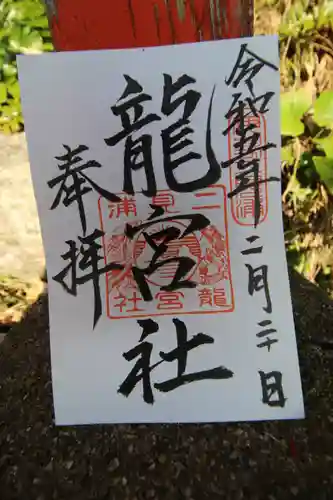 令和五年二月二十日
龍宮社
奉拝
二見浦
龍宮社